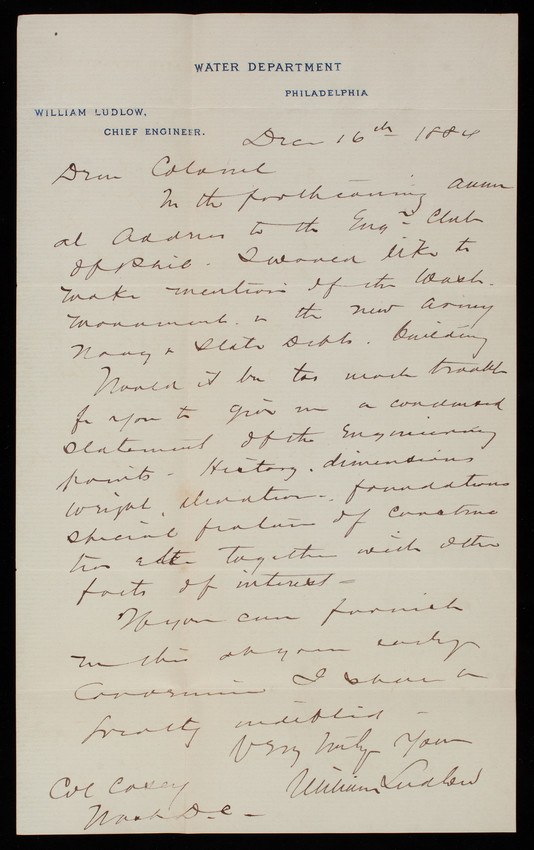 WATER DEPARTMENT
PHILADELPHIA
WILLIAM LUDLOW,
CHIEF ENGINEER.
Dec 16th 1884
Dear Colonel
In the forthcoming annu
al Address to the Engrs Club
of Phil. I would like to
make mention of the Wash.
monument & the new Army
Navy & State Depts. building
Would it be too much trouble
for you to give me a condensed
statement of the Engineering
points - History. dimensions
weight, elevation, foundations
special feature of construc
tion etc together with other
facts of interest -
If you can furnish
me this at your early
convenience I shall be
greatly indebted -
Very truly Yours
William Ludlow
Col Casey
Wash D.C -